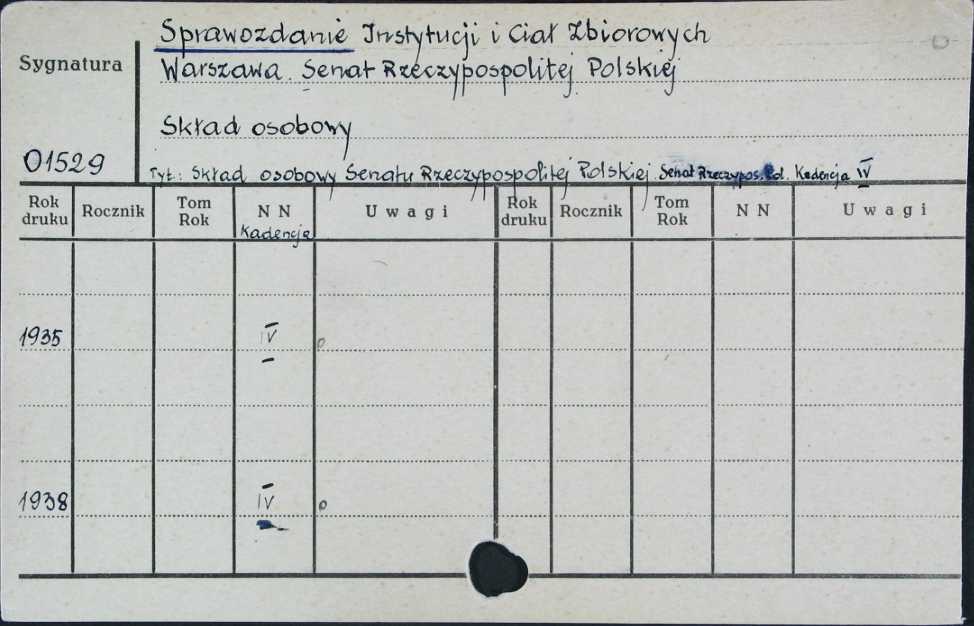 Sprawozdanie Instytucji i Ciał Zbiorowych
Sygnatura
Warszawa. Senat Rzeczypospolitej Polskiej
Skład osobowy
01529
Tyt.: Skład osobowy Senatu Rzeczypospolitej Polskiej. Senat Rzeczypos. Pol. Kadencja IV
Rok druku Rocznik Tom Rok N N Uwagi Rok druku Rocznik Tom Rok N N Uwagi
Kadencja
1935 IV o
1938 IV o